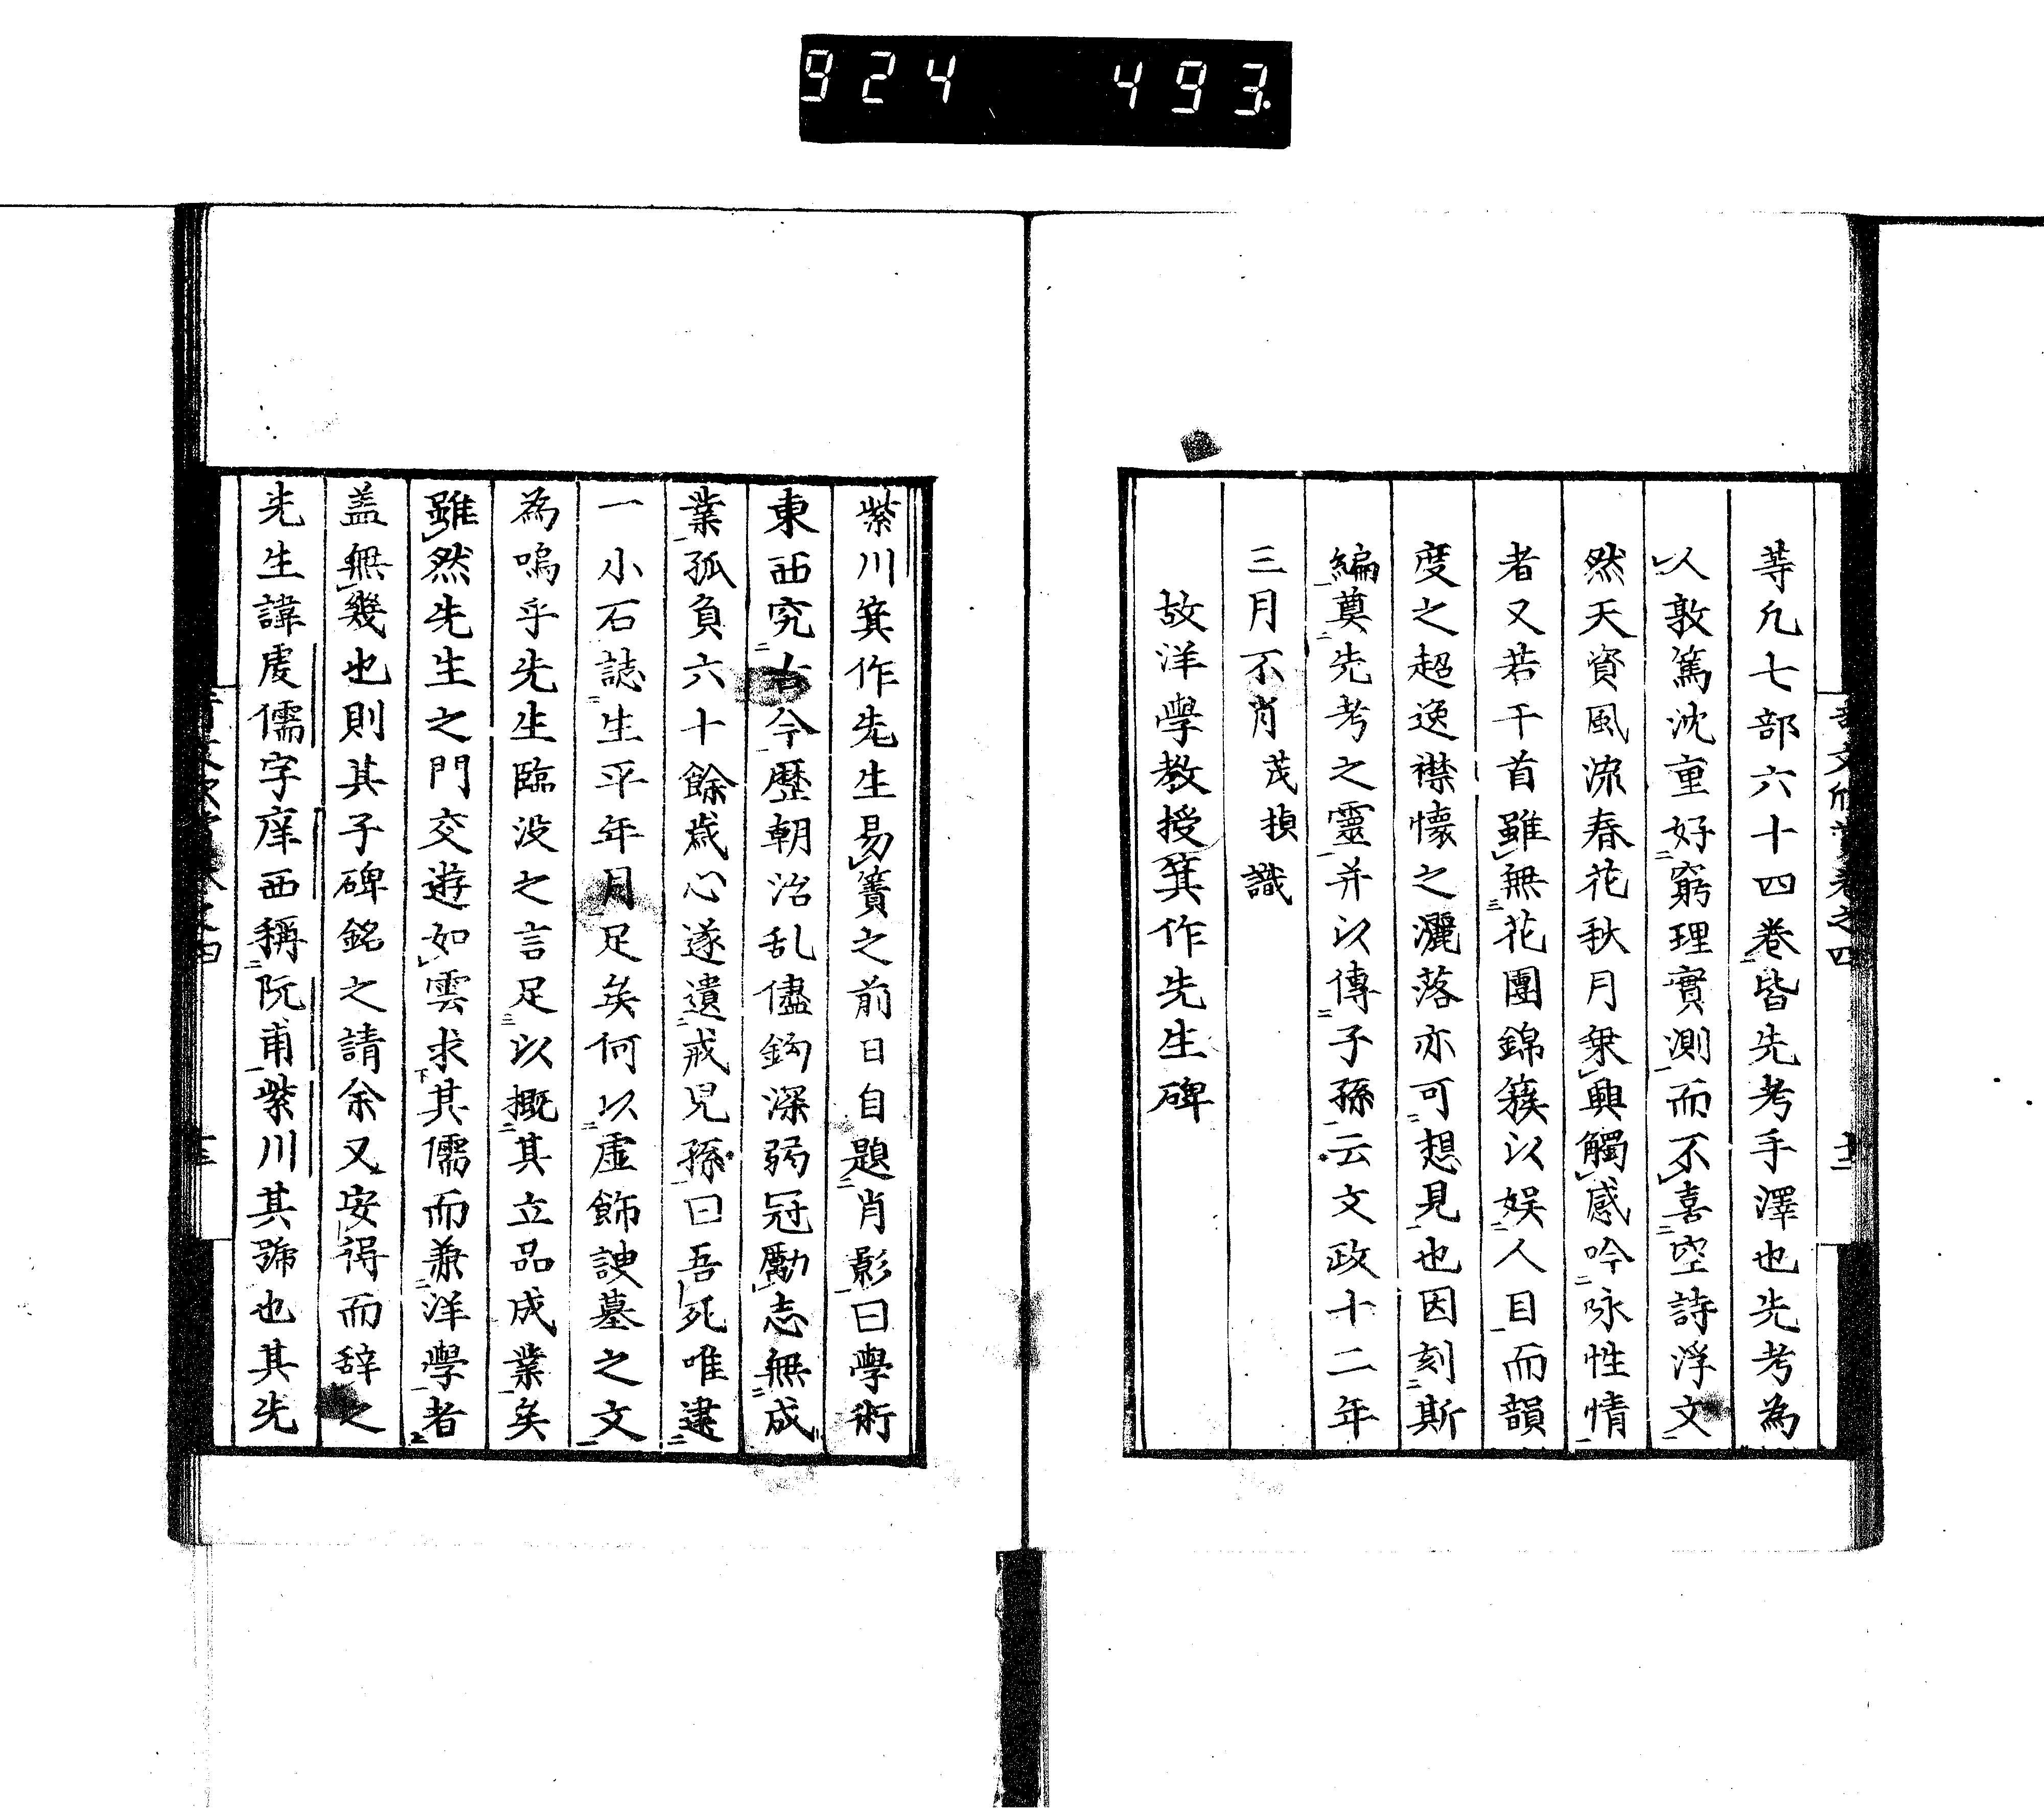 924 493.
等凢七部六十四卷皆先考手澤也先考為
人敦篤沈重好窮理實測而不喜空詩浮文
然天資風流春花秋月乗興觸感吟咏性情
者又若干首雖無花團錦簇以娛人目而韻
度之超逸襟懷之灑落亦可想見也因刻斯
編奠先考之靈并以傳子孫云文政十二年
三月不肖茂楨識
故洋學教授箕作先生碑
紫川箕作先生易簀之前日自題肖影曰學術
東西究古今歷朝治乱儘鈎深弱冠勵志無成
業孤負六十餘歲心遂遺戒兒孫曰吾死唯建
一小石誌生平年月足矣何以虛飾諛墓之文
為嗚乎先生臨没之言足以概其立品成業矣
雖然先生之門交遊如雲求其儒而兼洋學者
盖無幾也則其子碑銘之請余又安得而辞之
先生諱虔儒字庠西稱阮甫紫川其號也其先